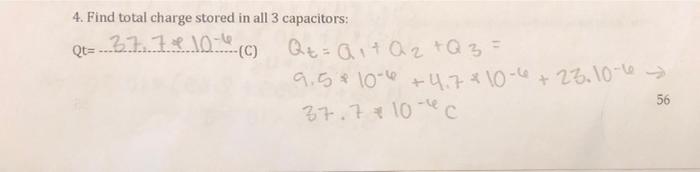 4. Find total charge stored in all 3 capacitors:
Qt= 37.7 * 10-6 (C) Qt = Q1 + Q2 + Q3 =
9.5 * 10-6 + 4.7 * 10-6 + 23.10-6 →
37.7 * 10-6 C
56